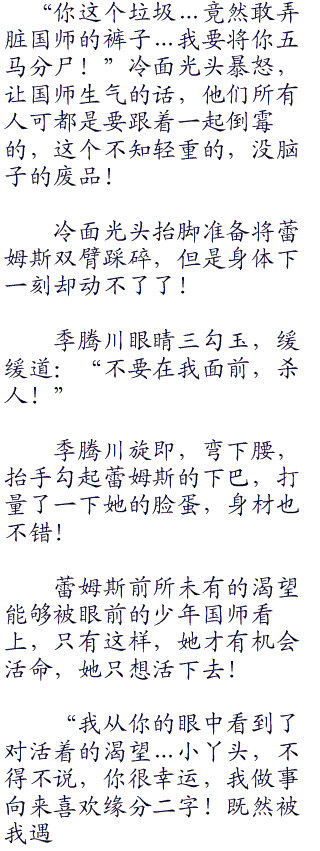 “你这个垃圾…竟然敢弄
脏国师的裤子…我要将你五
马分尸！”冷面光头暴怒，
让国师生气的话，他们所有
人可都是要跟着一起倒霉
的，这个不知轻重的，没脑
子的废品！
冷面光头抬脚准备将蕾
姆斯双臂踩碎，但是身体下
一刻却动不了了！
季腾川眼睛三勾玉，缓
缓道：“不要在我面前，杀
人！”
季腾川旋即，弯下腰，
抬手勾起蕾姆斯的下巴，打
量了一下她的脸蛋，身材也
不错！
蕾姆斯前所未有的渴望
能够被眼前的少年国师看
上，只有这样，她才有机会
活命，她只想活下去！
“我从你的眼中看到了
对活着的渴望…小丫头，不
得不说，你很幸运，我做事
向来喜欢缘分二字！既然被
我遇